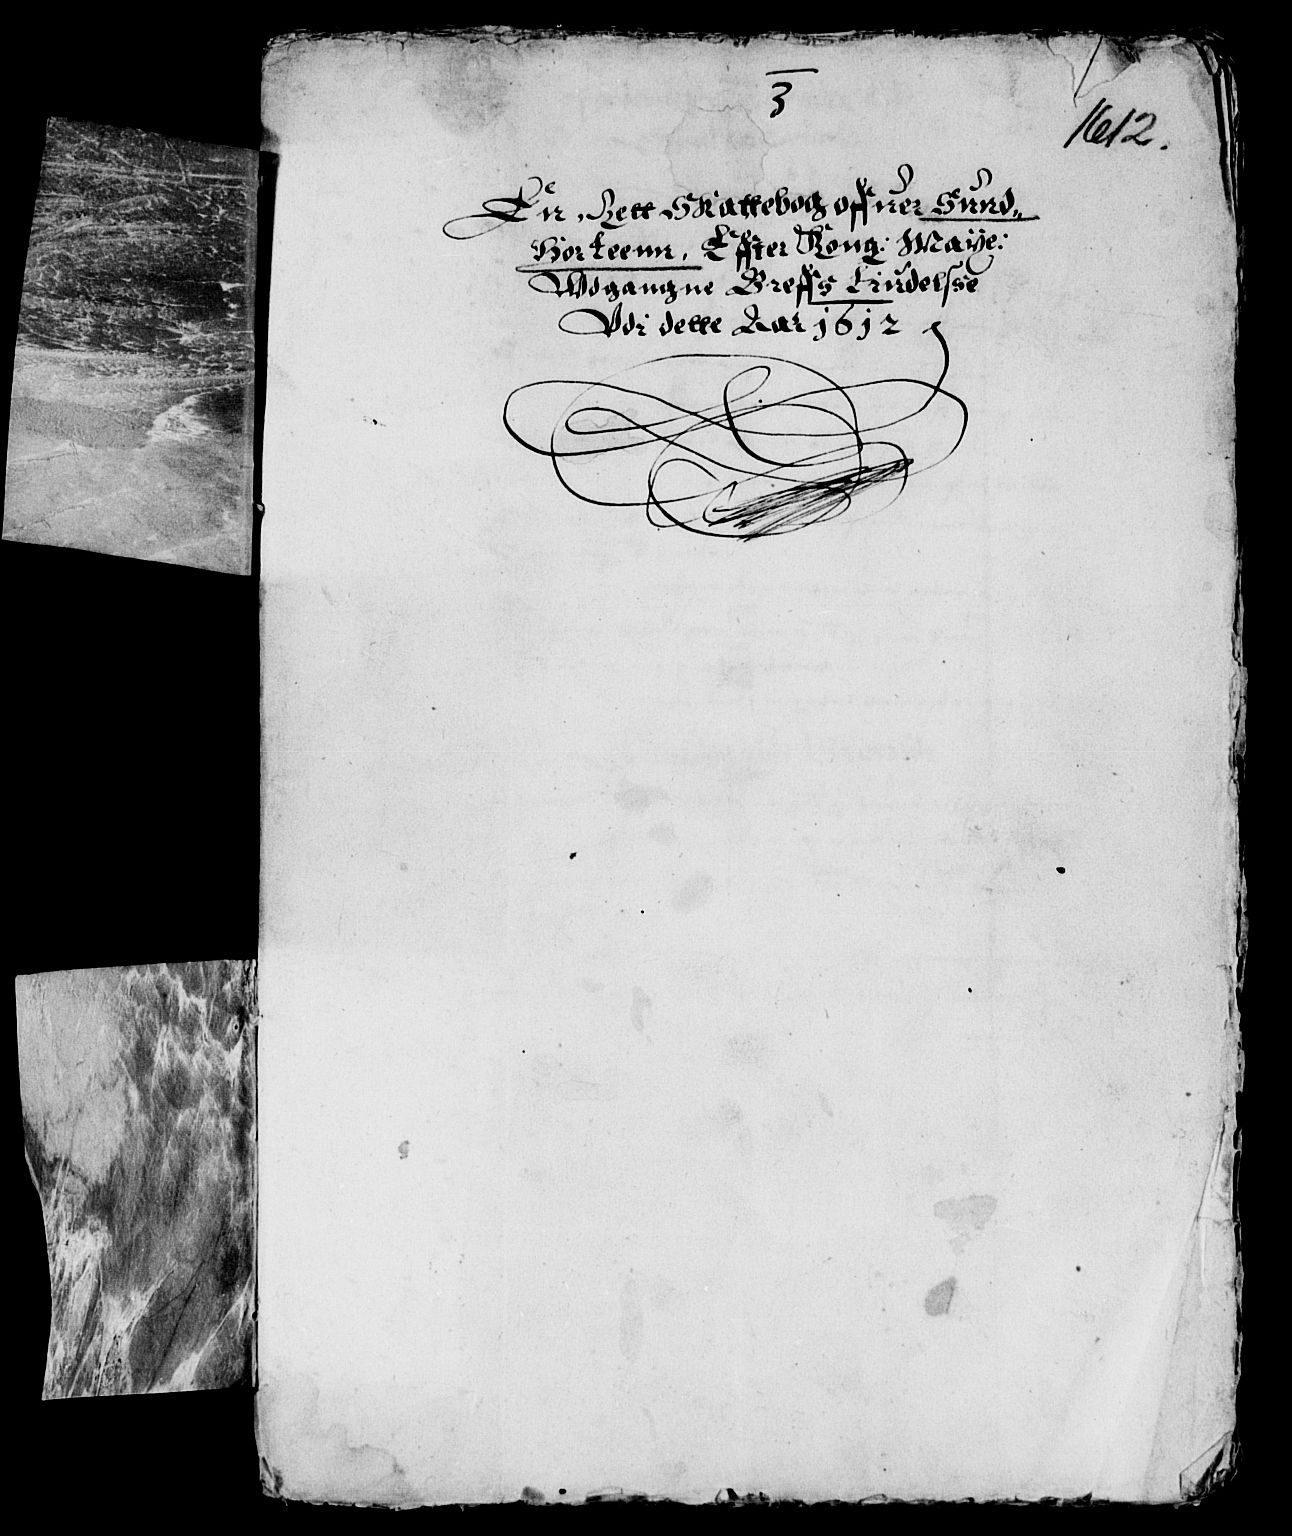 3
1612.
En Rett Skattebog offuer Sund„
Horleenn, Effter Kong: Maye:
Wdgangne Breffs Liudelsse
Vdi dette Aar 1612